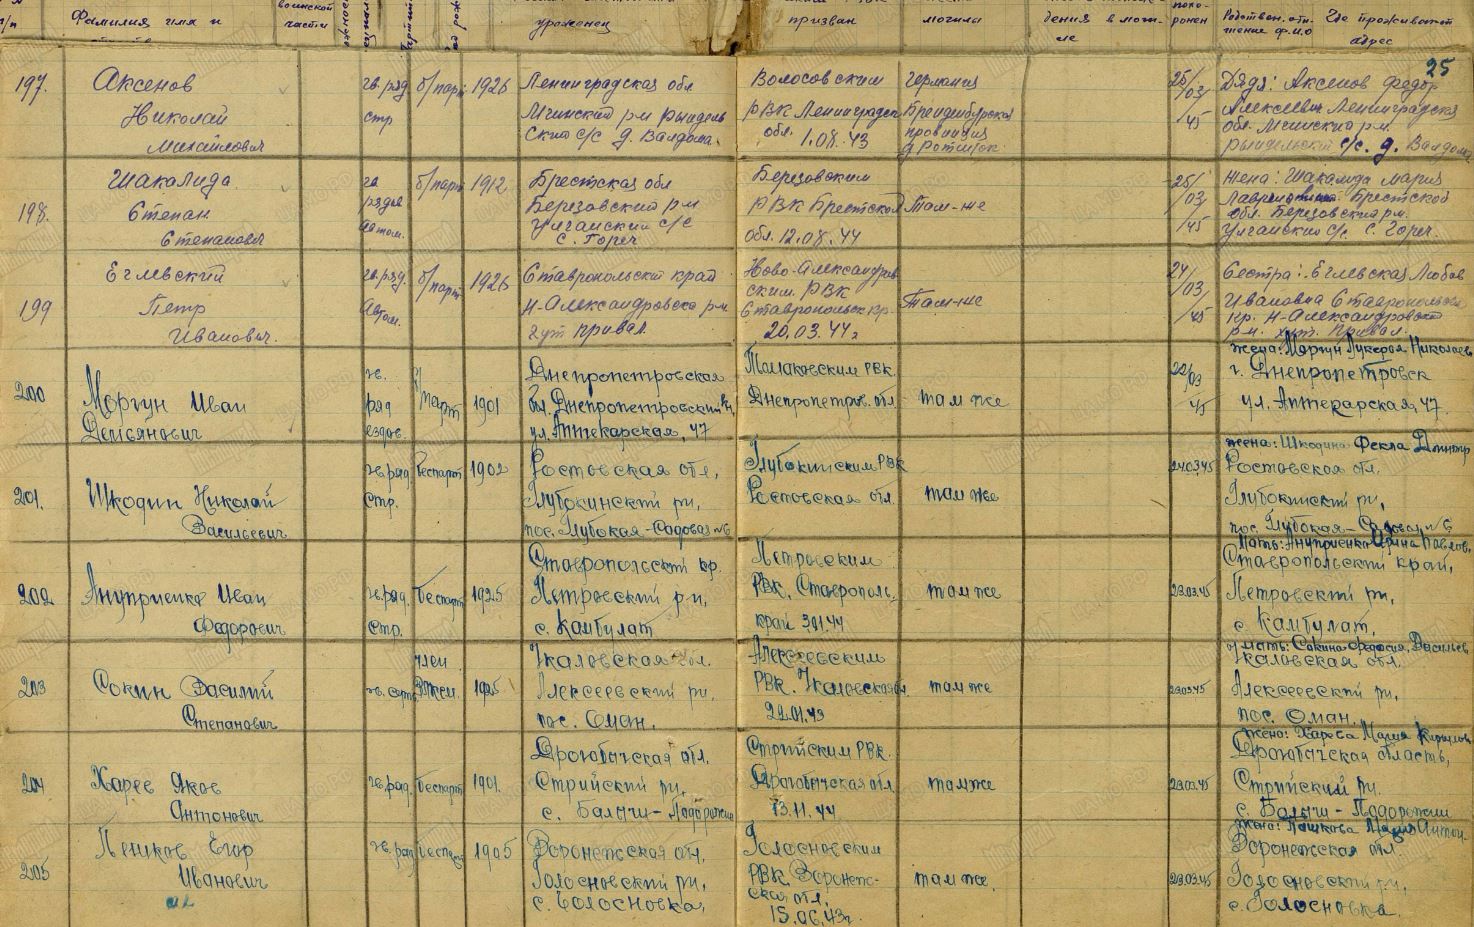 п/п Фамилия имя и воинской части уроженец призван могилы дения в моги- ле похо- ронен Родствен. отн- шение ф.и.о Где проживают адрес
25
197. Аксенов Николай Михайлович
гв. ряд стр
б/парт 1926
Ленинградская обл
Мгинский р-н
с/с д. Валдома.
Волосовским
РВК Ленинградск
обл. 1.08.43
Германия
Бранденбургская
провинция
25/03/45
Дядя: Аксенов Федор
Алексеевич Ленинградская
обл. Мгинский р-н.
с/с. д. Валдома
198. Шакалида Степан Степанович
гв рядов автом.
б/парт 1912
Брестская обл
Березовский р-н
с/с
с. Гореч
Березовским
РВК Брестской
обл. 12.08.44
Там-же
25/03/45
Жена: Шакалида Мария
Брестской
обл. Березовский р-н.
с/с. с. Гореч.
199 Еглевский Петр Иванович.
гв. ряд. Автом.
б/парт 1926
Ставропольский край
Н-Александровско р-н
хут Привал.
Ново-Александров
ским. РВК
Ставропольск кр.
20.03.44г
Там-же
24/03/45
Сестра: Еглевская Любов
Ивановна Ставропольск
кр. Н-Александровский
р-н. хут. Привал.
200 Моргун Иван Демьянович
гв. ряд ездов.
б/парт 1901
Днепропетровская
обл. Днепропетровский
ул. Аптекарская, 47
Томаковским РВК.
Днепропетров. обл.
там же
22/03 45
жена: Моргун Лукерья Николаев
г. Днепропетровск
ул. Аптекарская, 47.
201. Шкодин Николай Васильевич
гв. ряд. Стр.
беспарт 1902
Ростовская обл,
Глубокинский р-н,
пос. Глубокая-Садовая №6
Глубокинским РВК
Ростовская обл.
там же
24.03.45
жена: Шкодина Фекла Дмитр
Ростовская обл.
Глубокинский р-н,
пос. Глубокая-Садовая №6
202 Ануприенко Иван Федорович
гв. ряд. стр.
беспарт 1925
Ставропольский кр.
Петровский р-н,
с. Камбулат
Петровским
РВК, Ставрополь,
край 3.01.44
там же
23.03.45
Мать: Ануприенко Ирина Павлов,
Ставропольский край,
Петровский р-н,
с. Камбулат,
203 Сокин Василий Степанович
гв. серж
член
1925
Чкаловская обл.
Алексеевский р-н,
пос. Оман,
Алексеевским
РВК. Чкаловская обл
22.01.43
там же
23.03.45
мать: Сокина Васильев
Чкаловская обл.
Алексеевский р-н,
пос. Оман.
204 Харев Яков Антонович
гв. ряд.
беспарт 1901.
Дрогобычская обл.
Стрийский р-н,
с. Балычи-Подорожни
Стрийским РВК.
Дрогобычская обл
13.11.44
там же
23.03.45
жена: Харева Мария Кирилов
Дрогобычская область,
Стрийский р-н.
с. Балычи-Подорожни
205 Пешков Егор Иванович
гв. ряд
беспарт 1905
Воронежская обл,
Голосновский р-н,
с. Голосновка,
Голосновским
РВК, Воронеж-
ская обл,
15.06.43г.
там же,
23.03.45
Жена: Пешкова Мария Антон-
Воронежская обл.
Голосновский р-н,
с. Голосновка.